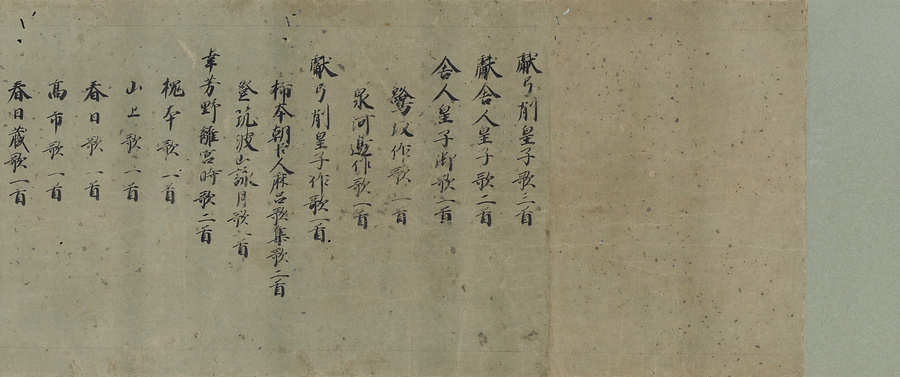 献弓削皇子歌三首
献舎人皇子歌二首
舎人皇子御歌一首
鷺坂作歌一首
泉河邊作歌一首
献弓削皇子作歌一首
柿本朝臣人麻呂歌集歌二首
登筑波山詠月歌一首
幸芳野離宮時歌二首
槐本歌一首
山上歌一首
春日歌一首
髙市歌一首
春日蔵歌一首